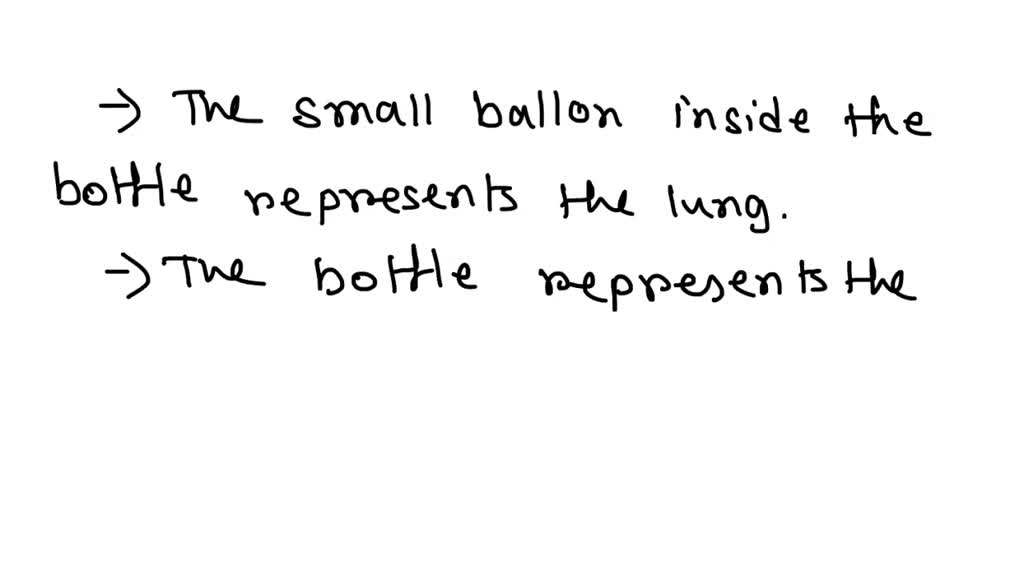 → The small ballon inside the
bottle represents the lung.
→ The bottle represents the